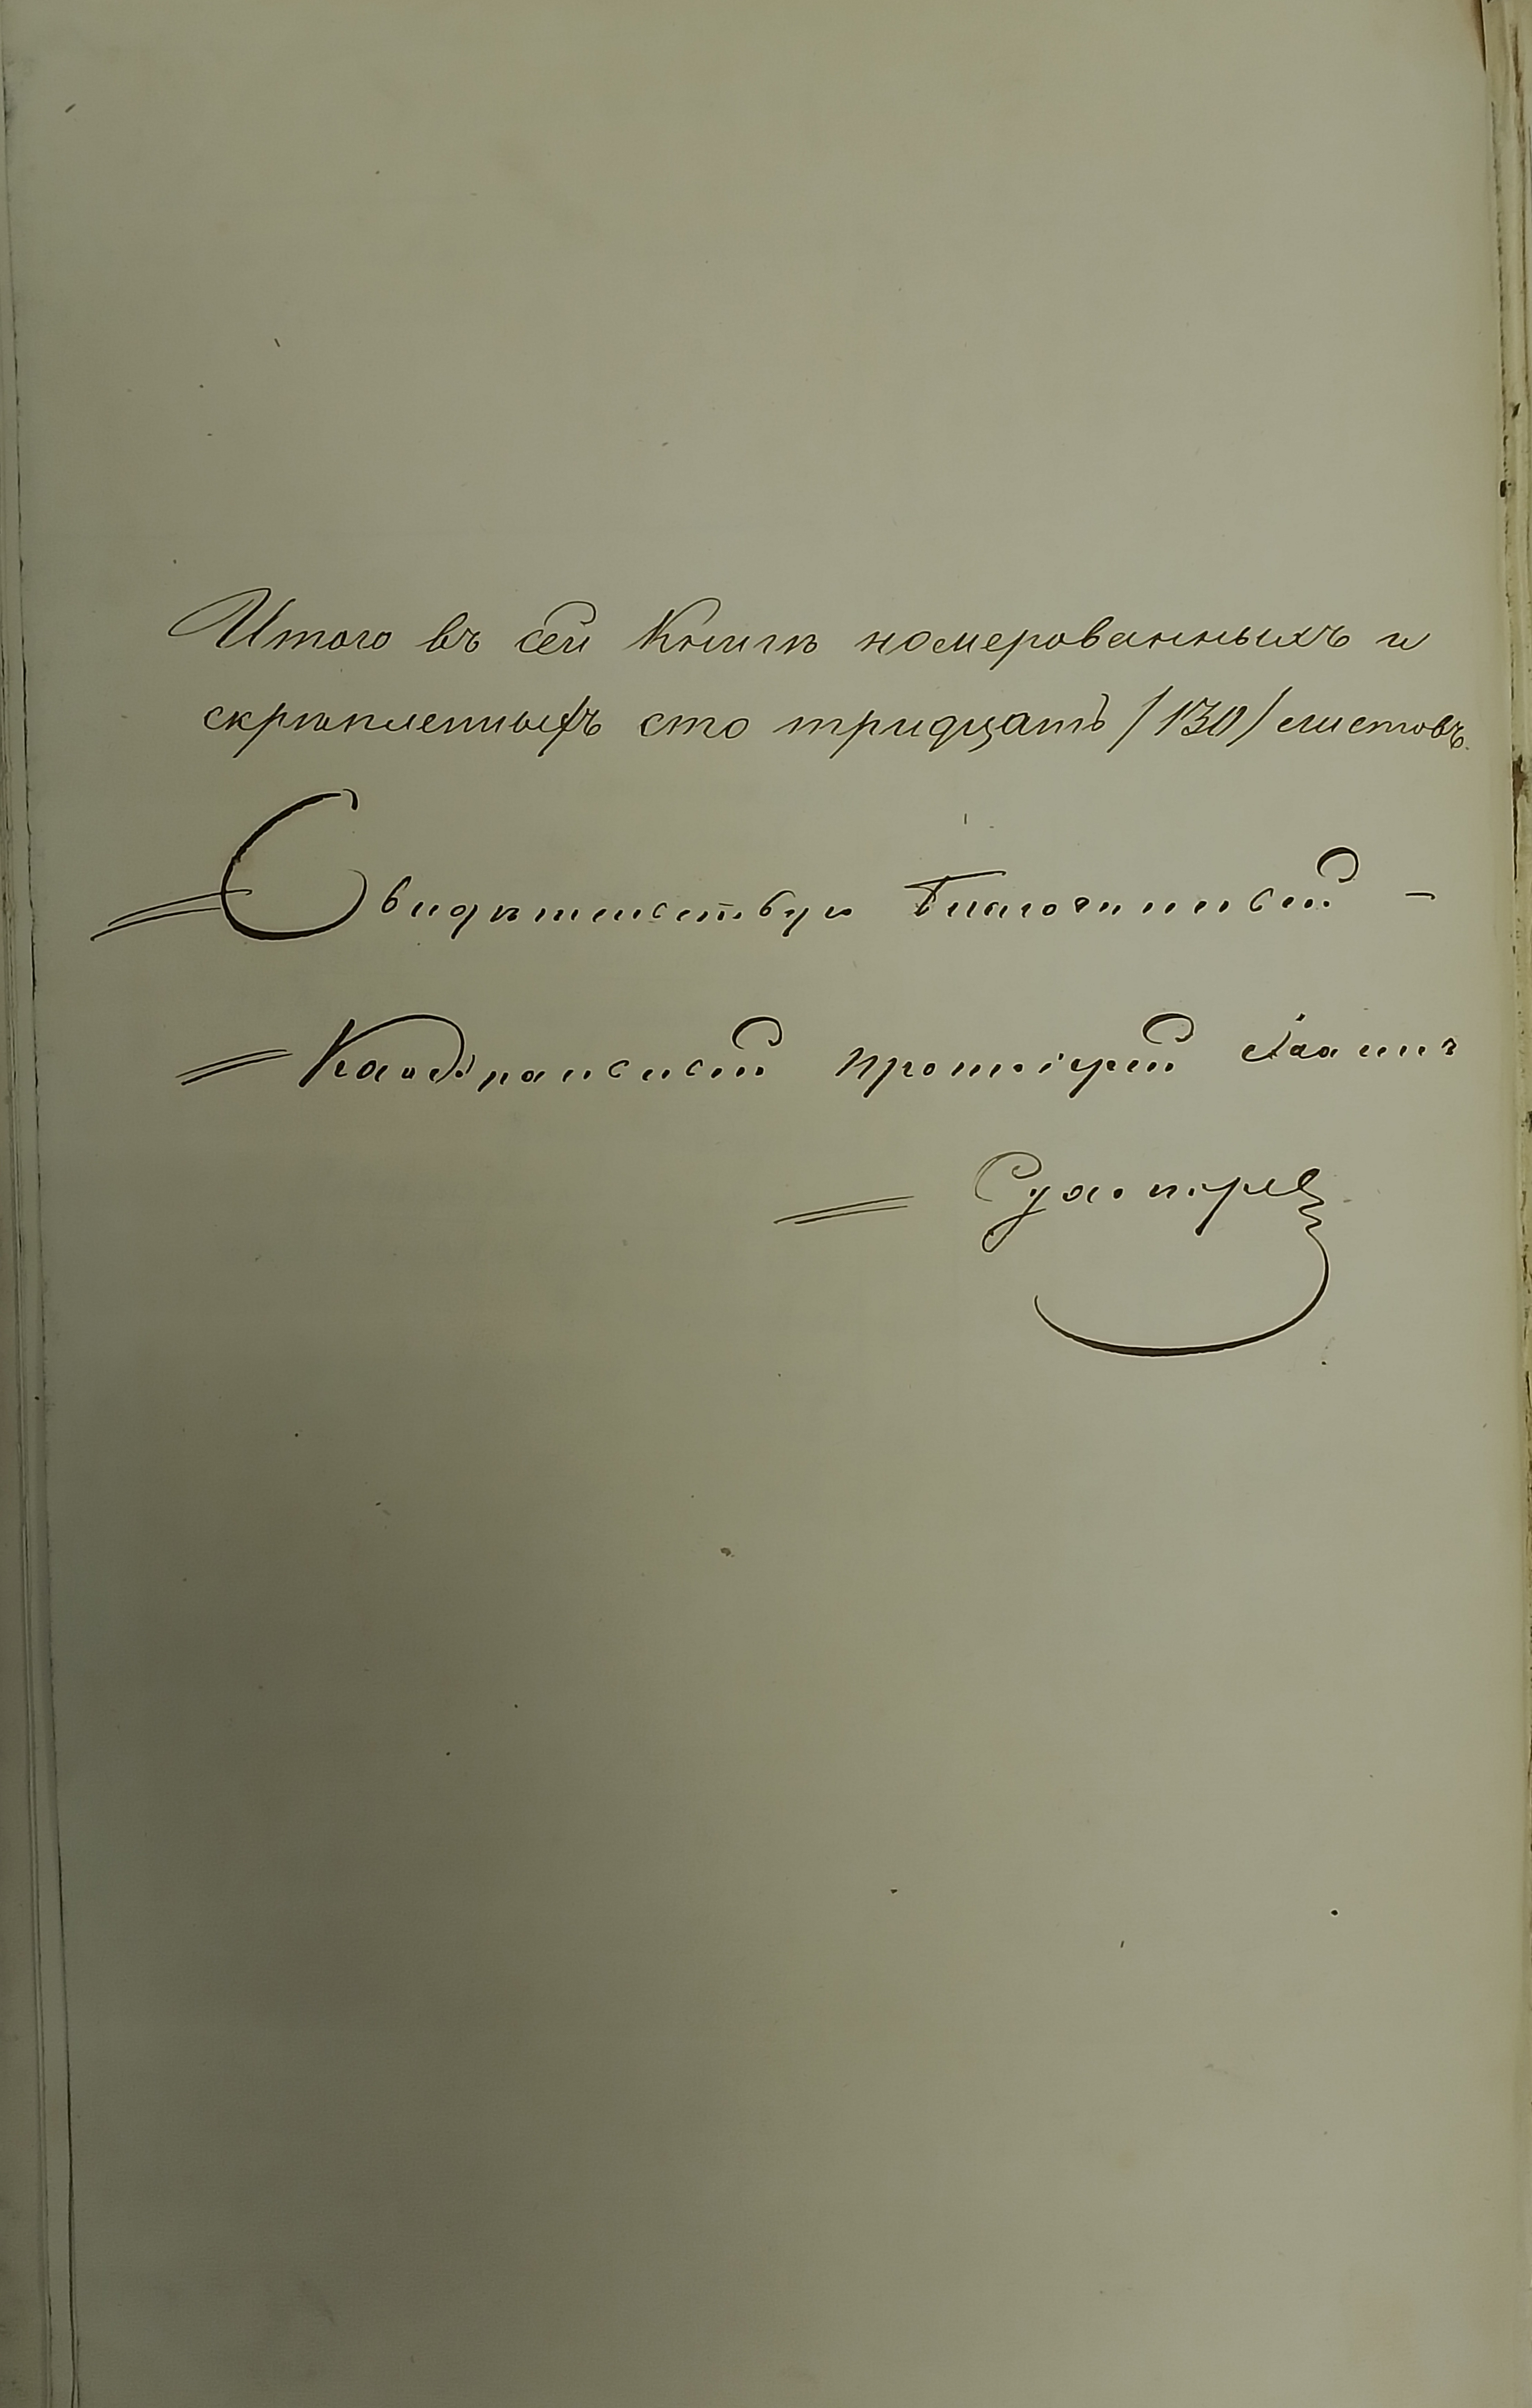 Итого въ сей Книгѣ номерованныхъ и
скрѣпленныхъ сто тридцать /130/ листовъ.
Свидѣтельствую Благочинный -
Каѳедральный протоіерей